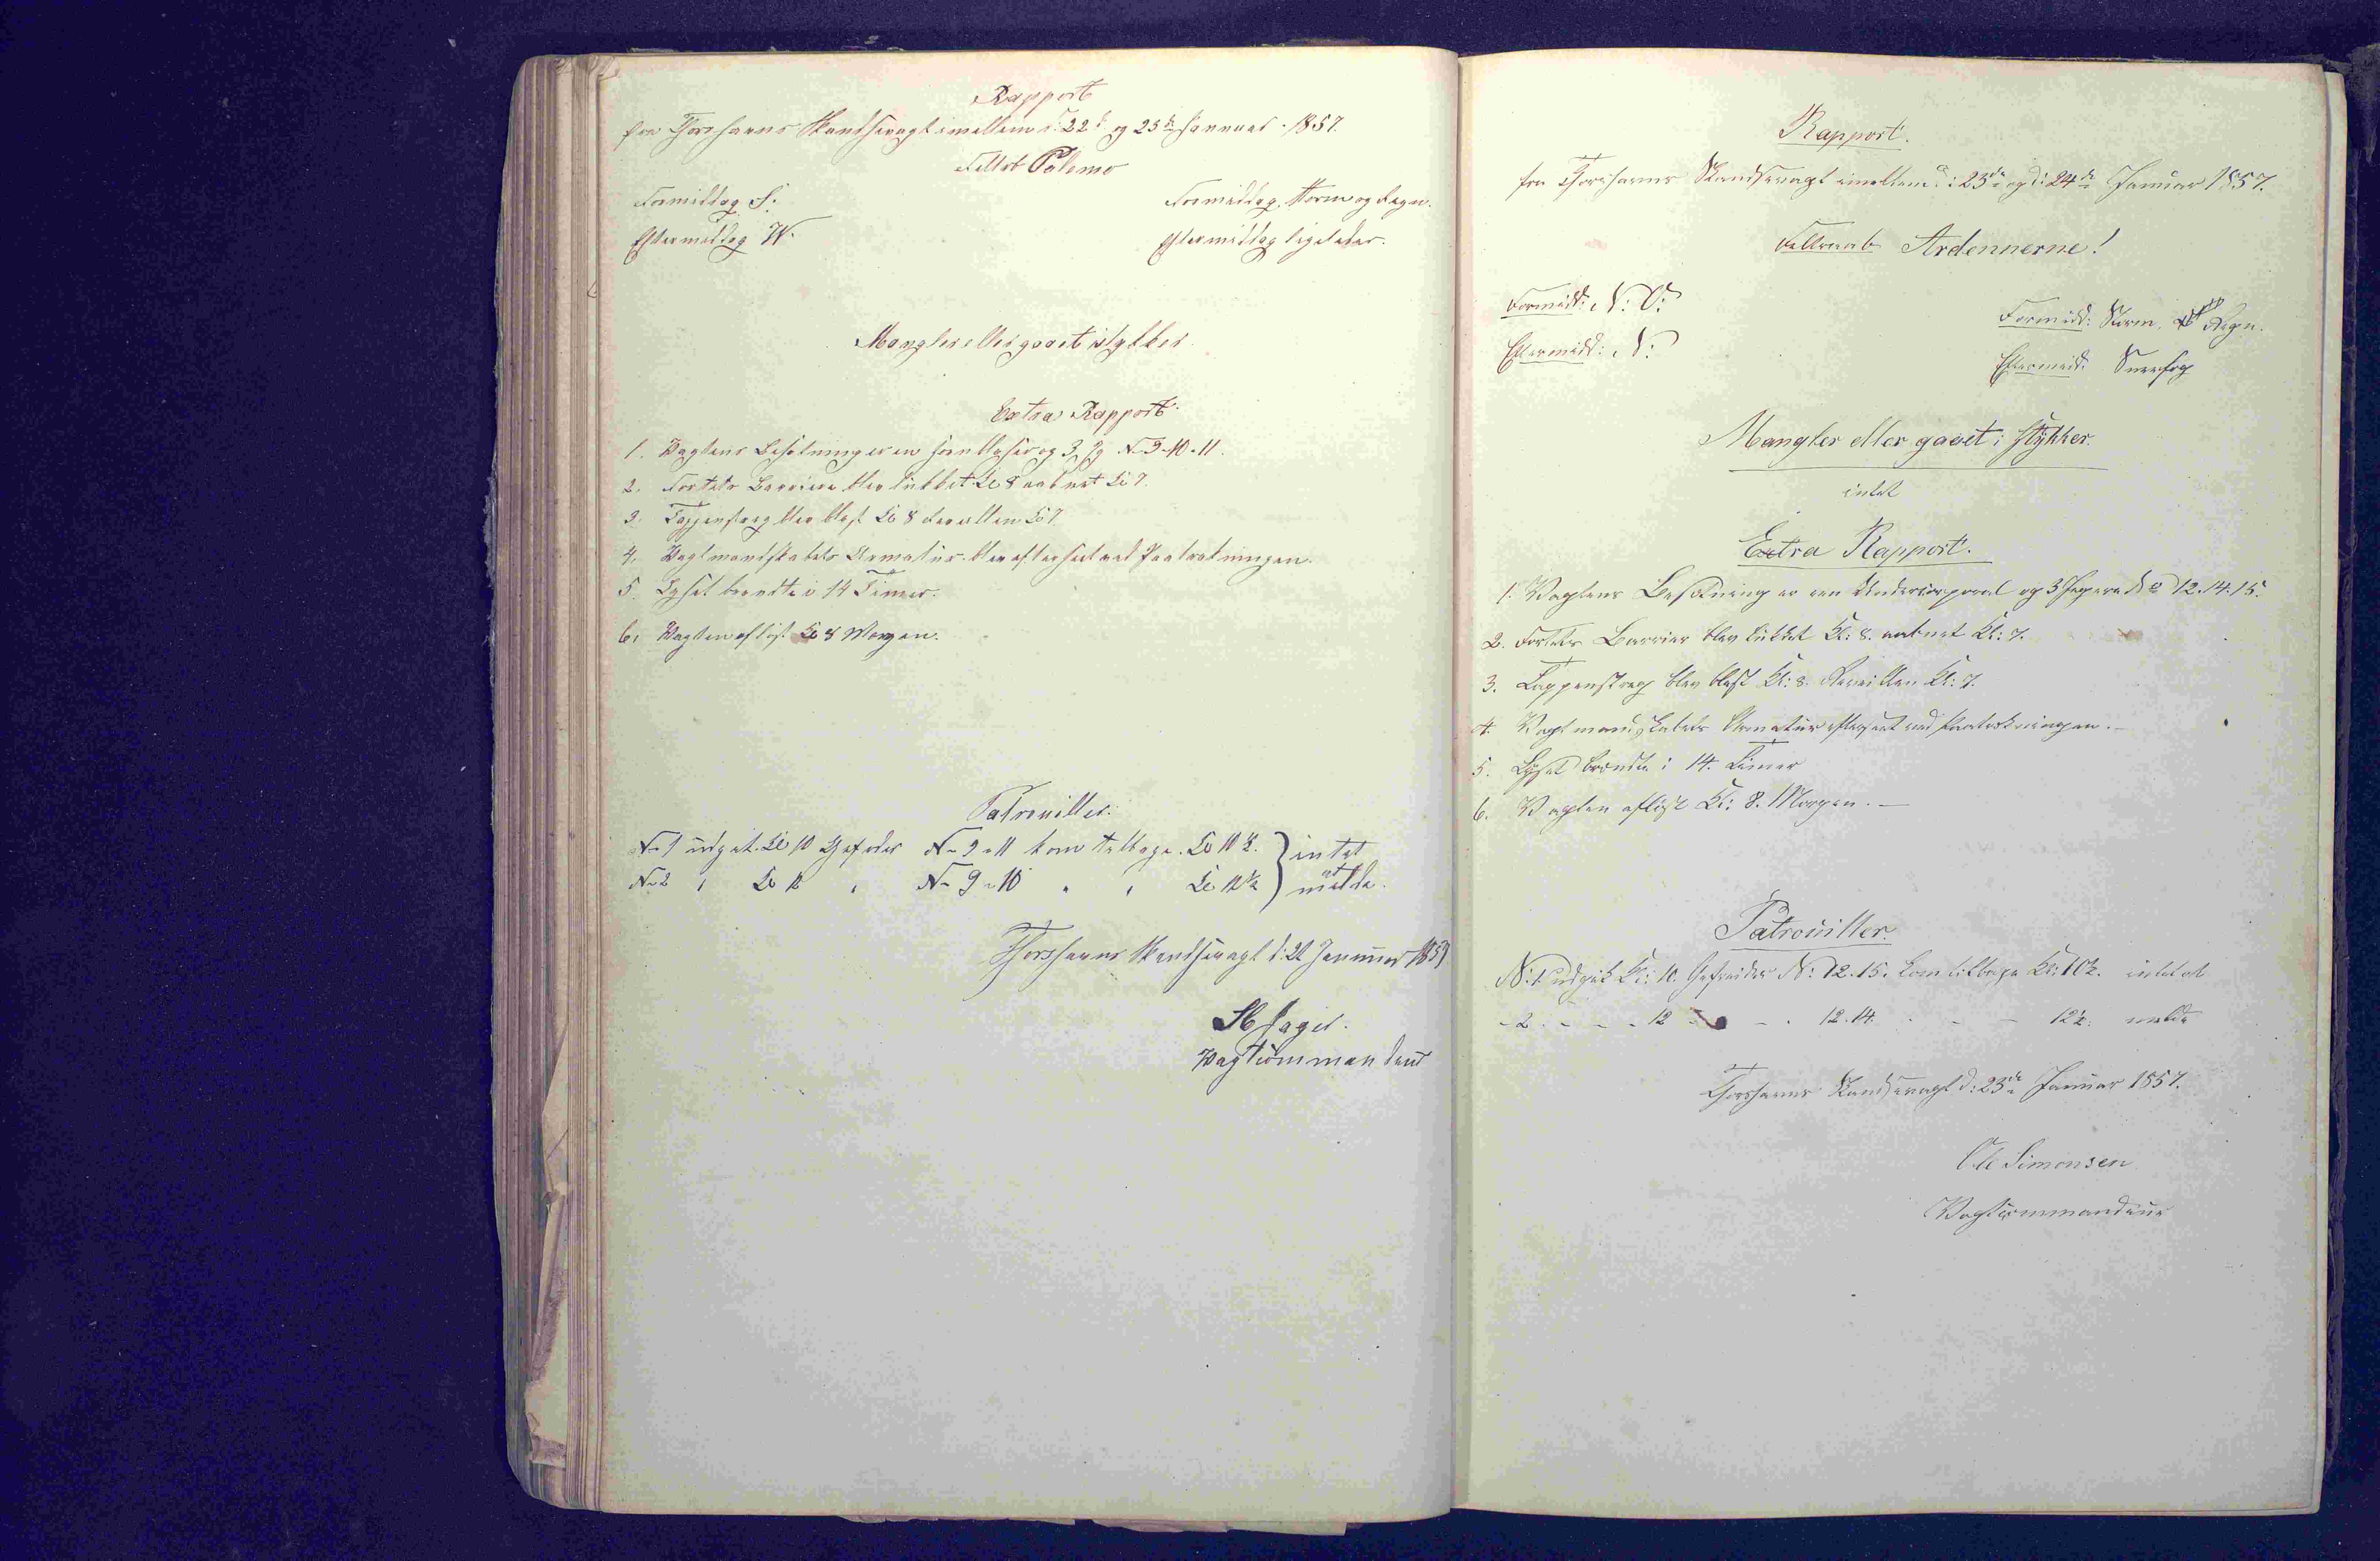 Rapport
fra Thorshavns Skandsevagt imellem d: 22de og 23de Januar 1857.
Feltrb Palemo
Formiddag S.
Formiddag Storm og Regn.
Eftermiddag W.
Eftermiddag ligeledes.
Mangler eller gaaet i stykker.
Extra Rapport
1. Vagtens Besætning er en og 3 Jg No 9-10-11.
2. Fortets Barriere blev lukket Kl 8 aabnet Kl 7.
3. Tappenstreg blev blæst Kl 8 Revellen Kl 7.
4. Vagtmandskabets Armatur blev efterseet ved Paatrædningen.
5. Lyset brændte i 14 Timer.
6. Vagten afløst Kl 8 Morgen.
Patrouiller.
No 1 udgik Kl 10 Gefrider No 9-11 kom tilbage Kl 10½. } intet
No 2 " Kl 12 " No 9-10 " " Kl 12½ } at melde.
Thorshavns Skandsevagt d: 22 Januar 1857
Vagtcommandeur
Rapport.
fra Thorshavns Skandsevagt imellem d: 23de og d: 24de Januar 1857.
Feltraab Ardennerne!
Formidd: N: O:
Formidd: Storm, Regn.
Eftermidd: N:
Eftermidd: Sneefog
Mangler eller gaaet i stykker.
intet
Extra Rapport.
1. Vagtens Besætning er een Undercorporal og 3 Jægere No 12. 14. 15.
2. Fortets Barrier blev lukket Kl: 8. aabnet Kl: 7.
3. Tappenstreg blev blæst Kl: 8. Reveillen Kl: 7.
4. Vagtmandskabets Armatur efterseet ved Paatrædningen.
5. Lyset brændte i 14. Timer
6. Vagten afløst Kl: 8. Morgen.
Patrouiller.
No: 1. udgik Kl: 10. Gefreider No: 12. 15. kom tilbage Kl: 10½. intet at
- 2. - - - 12 - - 12. 14. - - 12½. melde
Thorshavns Skandsevagt d: 23de Januar 1857.
Ole Simonsen
Vagtcommandeur